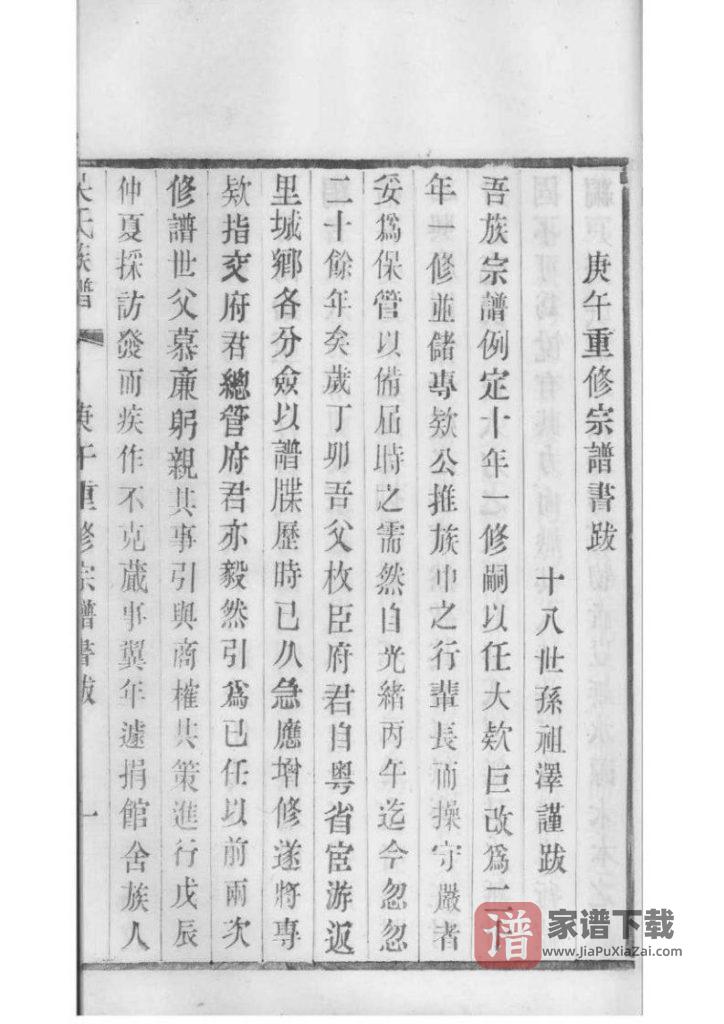 庚午重修宗譜書跋
十八世孫祖澤謹跋
吾族宗譜例定十年一修嗣以任大欵巨改爲二十
年一修並儲專欵公推族中之行輩長而操守嚴者
妥爲保管以備屆時之需然自光緒丙午迄今忽忽
二十餘年矣歲丁卯吾父枚臣府君自粤省宦游返
里城鄉各分僉以譜牒歷時已久急應增修遂將專
欵指交府君總管府君亦毅然引爲已任以前兩次
修譜世父慕亷躬親其事引與商榷共策進行戊辰
仲夏採訪發而疾作不克蕆事翼年遽捐館舍族人
吴氏族譜
庚午重修宗譜書跋
一
谱 家谱下载
www.JiaPuXiaZai.com